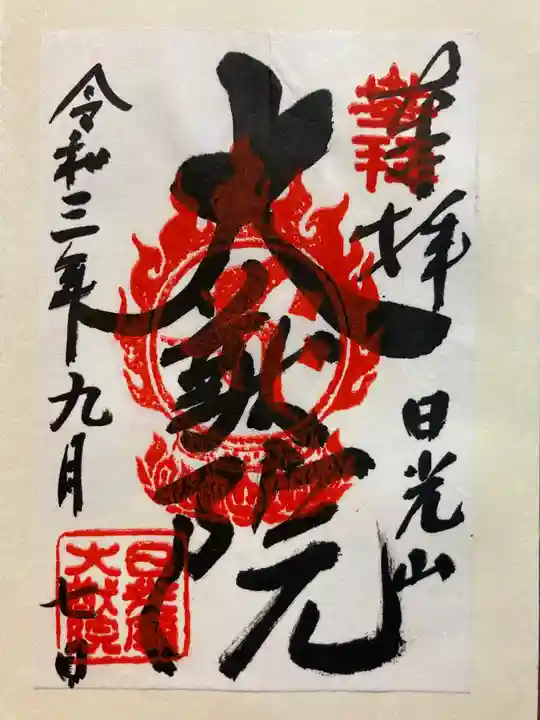 奉拝 日光山
大猷院
令和三年九月七日
日光廟
大猷院